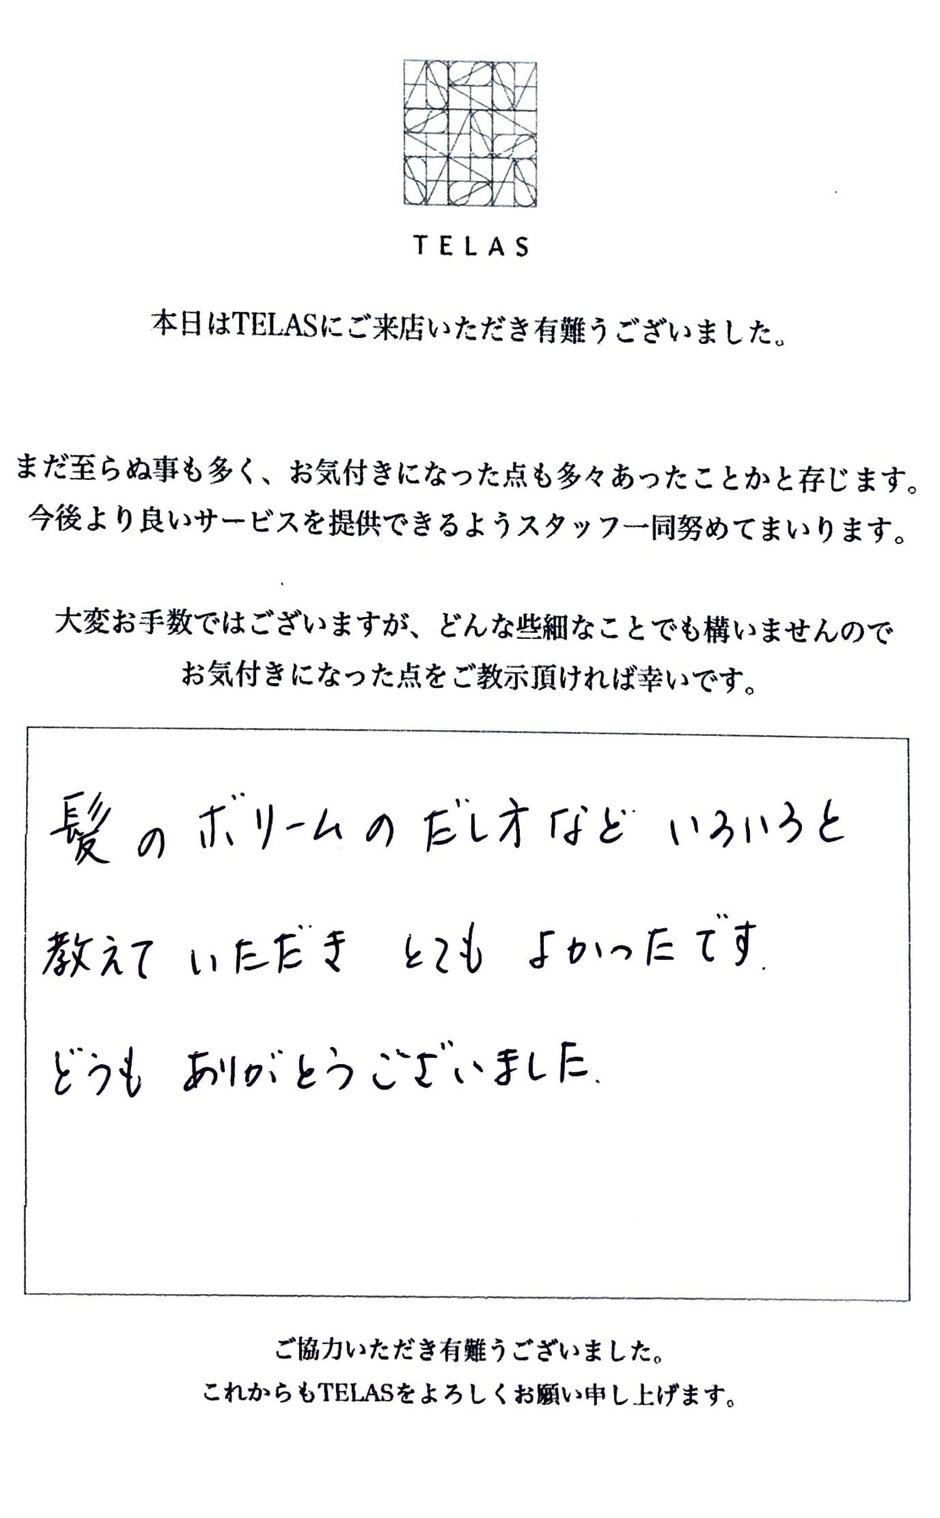 TELAS
本日はTELASにご来店いただき有難うございました。
まだ至らぬ事も多く、お気付きになった点も多々あったことかと存じます。
今後より良いサービスを提供できるようスタッフ一同努めてまいります。
大変お手数ではございますが、どんな些細なことでも構いませんので
お気付きになった点をご教示頂ければ幸いです。
髪のボリームのだし方など いろいろと
教えて いただき とても よかったです.
どうも ありがとうございました.
ご協力いただき有難うございました。
これからもTELASをよろしくお願い申し上げます。